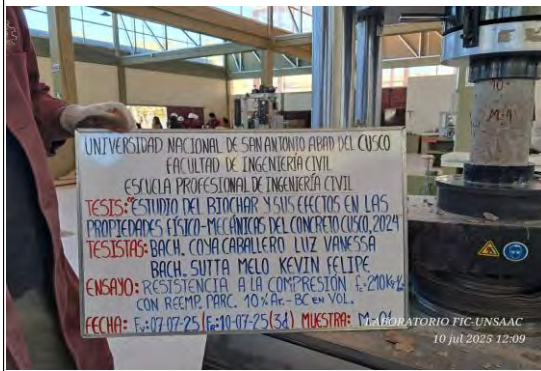 UNIVERSIDAD NACIONAL DE SAN ANTONIO ABAD DEL CUSCO
FACULTAD DE INGENIERÍA CIVIL
ESCUELA PROFESIONAL DE INGENIERÍA CIVIL
TESIS: "ESTUDIO DEL BIOCHAR Y SUS EFECTOS EN LAS
PROPIEDADES FÍSICO-MECÁNICAS DEL CONCRETO CUSCO, 2024
TESISTAS: BACH. COYA CABALLERO LUZ VANESSA
BACH. SUTTA MELO KEVIN FELIPE
ENSAYO: RESISTENCIA A LA COMPRESIÓN
CON REEMP. PARC. 10% Ar.-BC EN VOL.
FECHA: Fv:07-07-25 (Fr:10-07-25(3d) MUESTRA: M-01
LABORATORIO FIC-UNSAAC
10 jul 2025 12:09